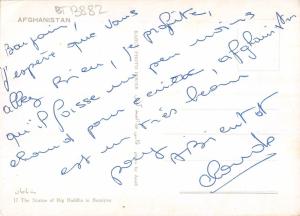 BT 3882
AFGHANISTAN
Bonjour,
J'espère que vous
allez bien, je profite,
qu'il fasse un peu moins
chaud pour écrire, Afghanistan
est un très beau
pays A Bientot
Claude
17 The Statue of Big Buddha in Bamiyan